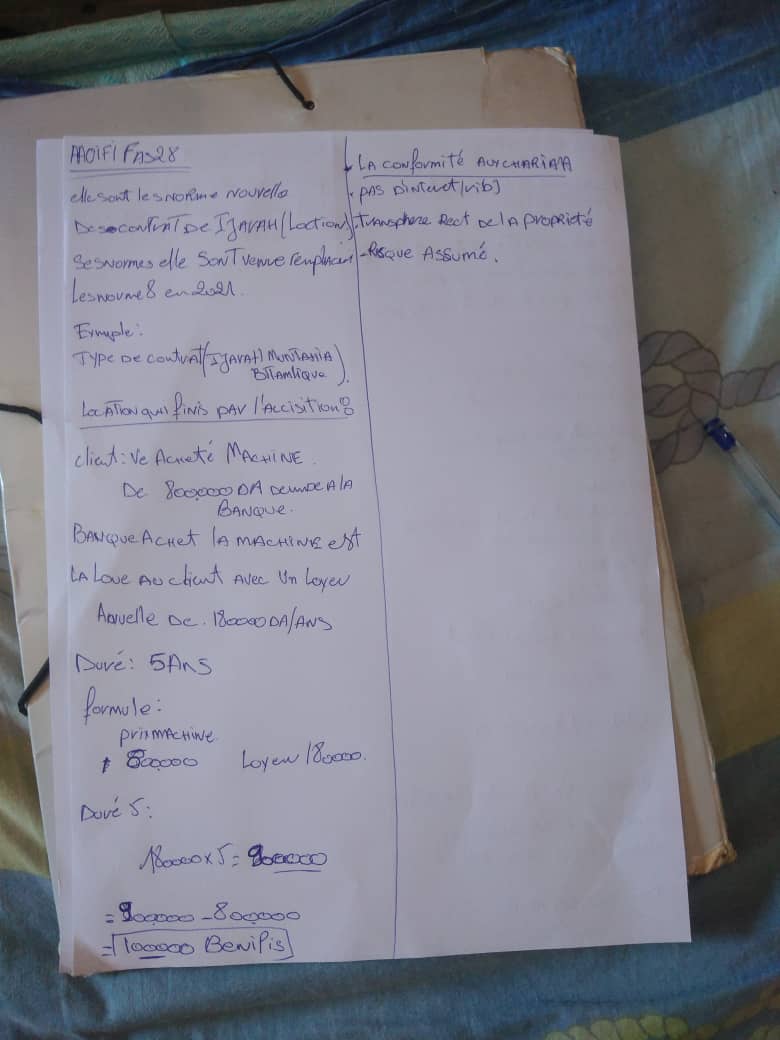 AAOIFI FAS28
elle sont les NORME Nouvelle
DeseCONTRAT DE IJARAH (Loction)
Ses Normes elle SONT venue remplacer
Les norme 8 en 2021.
Exmple:
TYPE DE contrat (IJARAH MUNTAHIA
BITAMLIQUE).
LOCATION qui finis par l'Accisition:
client: Ve Acheté MACHINE.
De 800,000 DA Demnde A la
BANQUE.
BANQUE Achet la MACHINE est
LA Loue Au client Avec Un Loyer
Anuelle De. 180000 DA/ANS
Duré: 5 Ans
formule:
prix MACHINE.
800000 Loyer 180000.
Duré 5:
180000 x 5 = 900000
= 900000 - 800000
= 100000 Benifis
LA Conformité AUX CHARIAA
. PAS D'interet/rib)
. Transphere Rect De la PROPRIETÉ
- Risque ASSUMÉ.